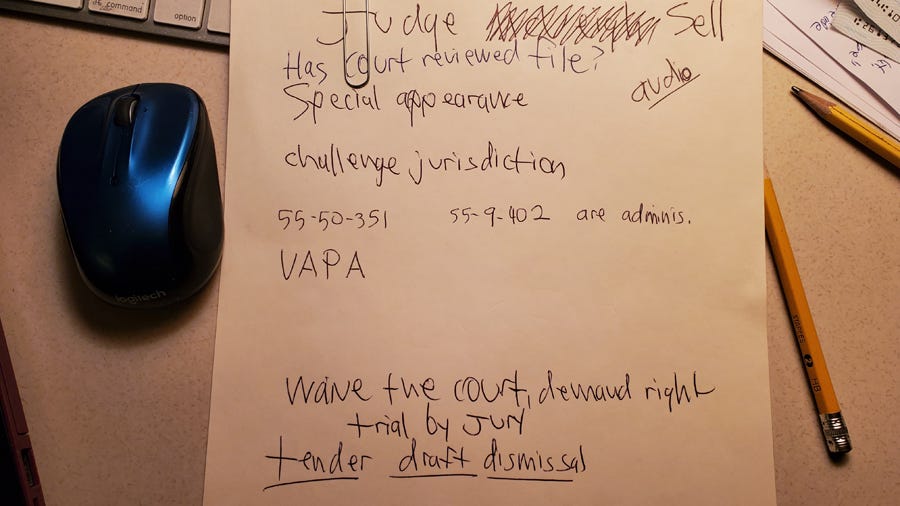 command
option
Judge Sell
Has court reviewed file?
audio
Special appearance
challenge jurisdiction
55-50-351 55-9-402 are adminis.
VAPA
logitech
waive the court, demand right
trial by Jury
tender draft dismissal
2 HB